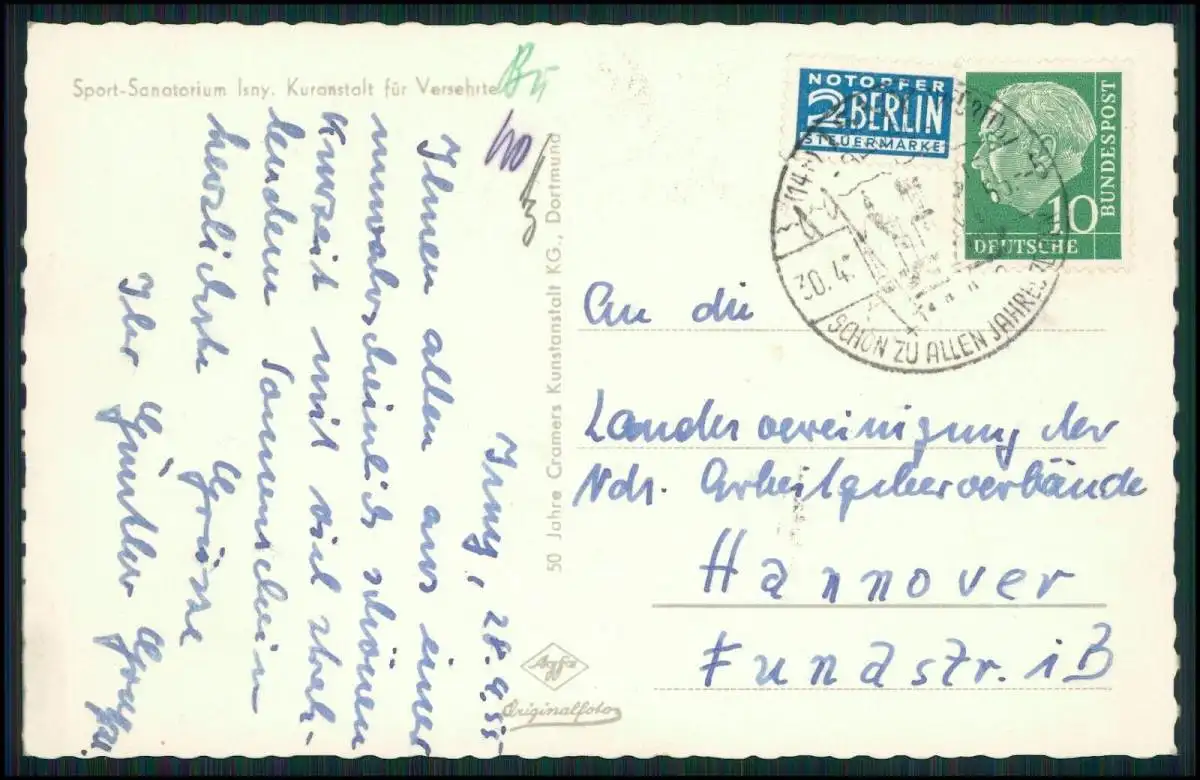 Sport-Sanatorium Isny. Kuranstalt für Versehrte
Isny, 28.9.55
Ihnen allen aus einer
wunderschönen
Kurzeit mit viel strah-
lendem Sonnenschein
herzlichste Grüsse
Ihr Günther
50 Jahre Cramers Kunstanstalt KG., Dortmund
Agfa
Originalfoto
NOTOPFER
2 BERLIN
STEUERMARKE
10
DEUTSCHE
BUNDESPOST
30.
SCHÖN ZU ALLEN JAHRESZ
An die
Landesvereinigung der
Nds. Arbeitgeberverbände
Hannover
Fundstr. 1B